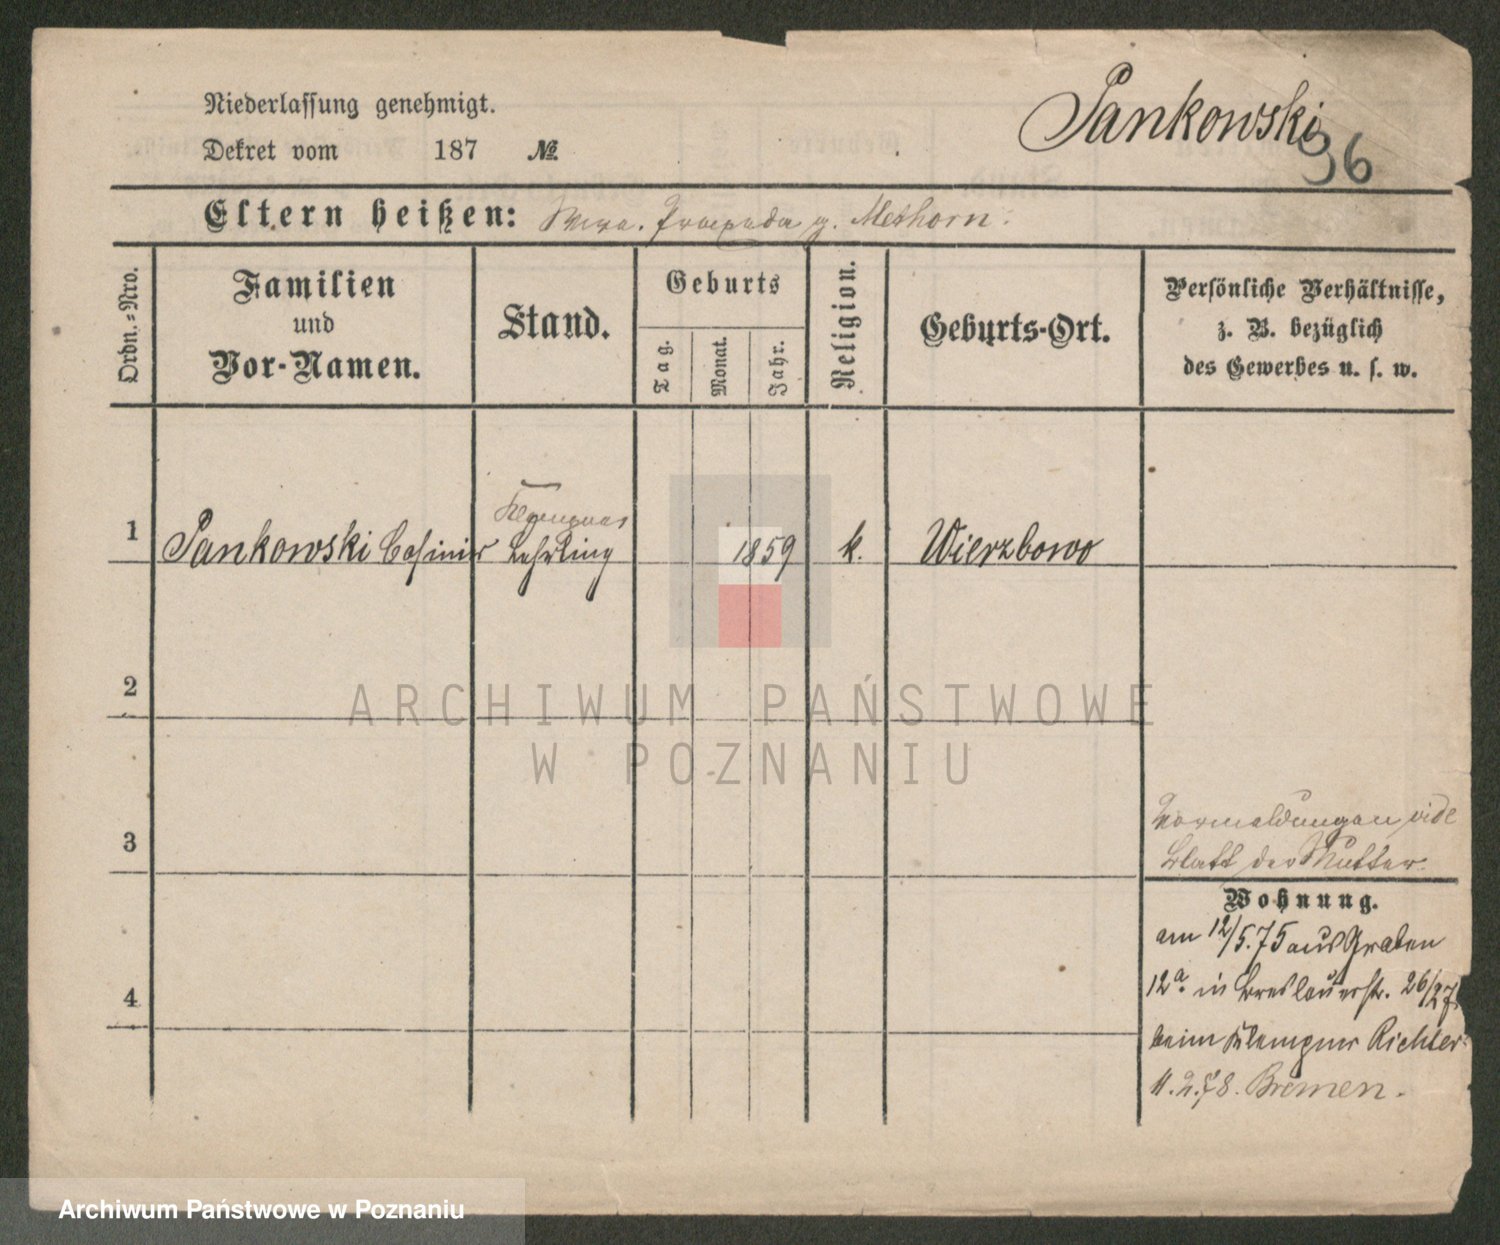 Pankowski
96
Niederlassung genehmigt.
Dekret vom 187 №
Eltern heißen: g. Methorn.
Ordn.-Nro.
Familien
und
Vor-Namen.
Stand.
Geburts
Tag.
Monat.
Jahr.
Religion.
Geburts-Ort.
Persönliche Verhältnisse,
z. B. bezüglich
des Gewerbes u. s. w.
Klempner
1 Pankowski Casimir Lehrling 1859 k. Wierzbowo
2
3
4
Vormeldungen vide
Blatt der Mutter.
Wohnung.
am 12/5.75 aus Graben
12a. in Breslauerstr. 26/27
beim Klempner Richter
11.2.78. Bremen.
ARCHIWUM PAŃSTWOWE
W POZNANIU
Archiwum Państwowe w Poznaniu